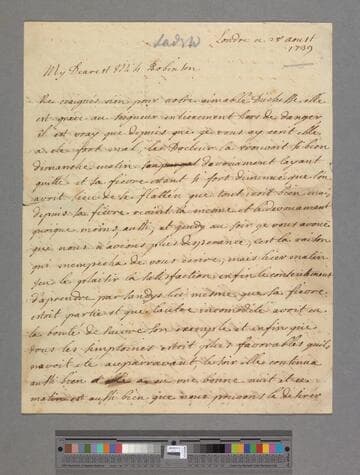 Londre ce 28 aoust
1739
My Dearest Mrs Robinson
Ne craignés rien pour notre aimable Duchesse elle
est grace au Seigneur entierement hors de danger
il est vray que depuis que je vous ay écrit elle
a été fort mal, les Docteur la trouvoit si bien
dimanche matin
quitté et sa fievre étant si fort diminué que l'on
avoit lieu de se flatter que tout iroit bien mais
depuis sa fievre
quoique moins, et jeudy au soir je vous avoue
que nous n'avions plus d'esperance, c'est la raison
qui m'empecha de vous écrire, mais hier matin
j'eu le plaisir la satisfaction enfin le contentement
d'aprendre par Sandys luy mesme que sa fievre
estoit partie et que l'autre incomodité avoit eu
la bonté de suivre son exemple et enfin que
tous les simptomes étoit plus favorables qu'ils
n'avoit été auparravant, le soir elle continua
aussi bien a eu une bonne nuit et ce
matin est aussi bien que nous pouvons le desirer